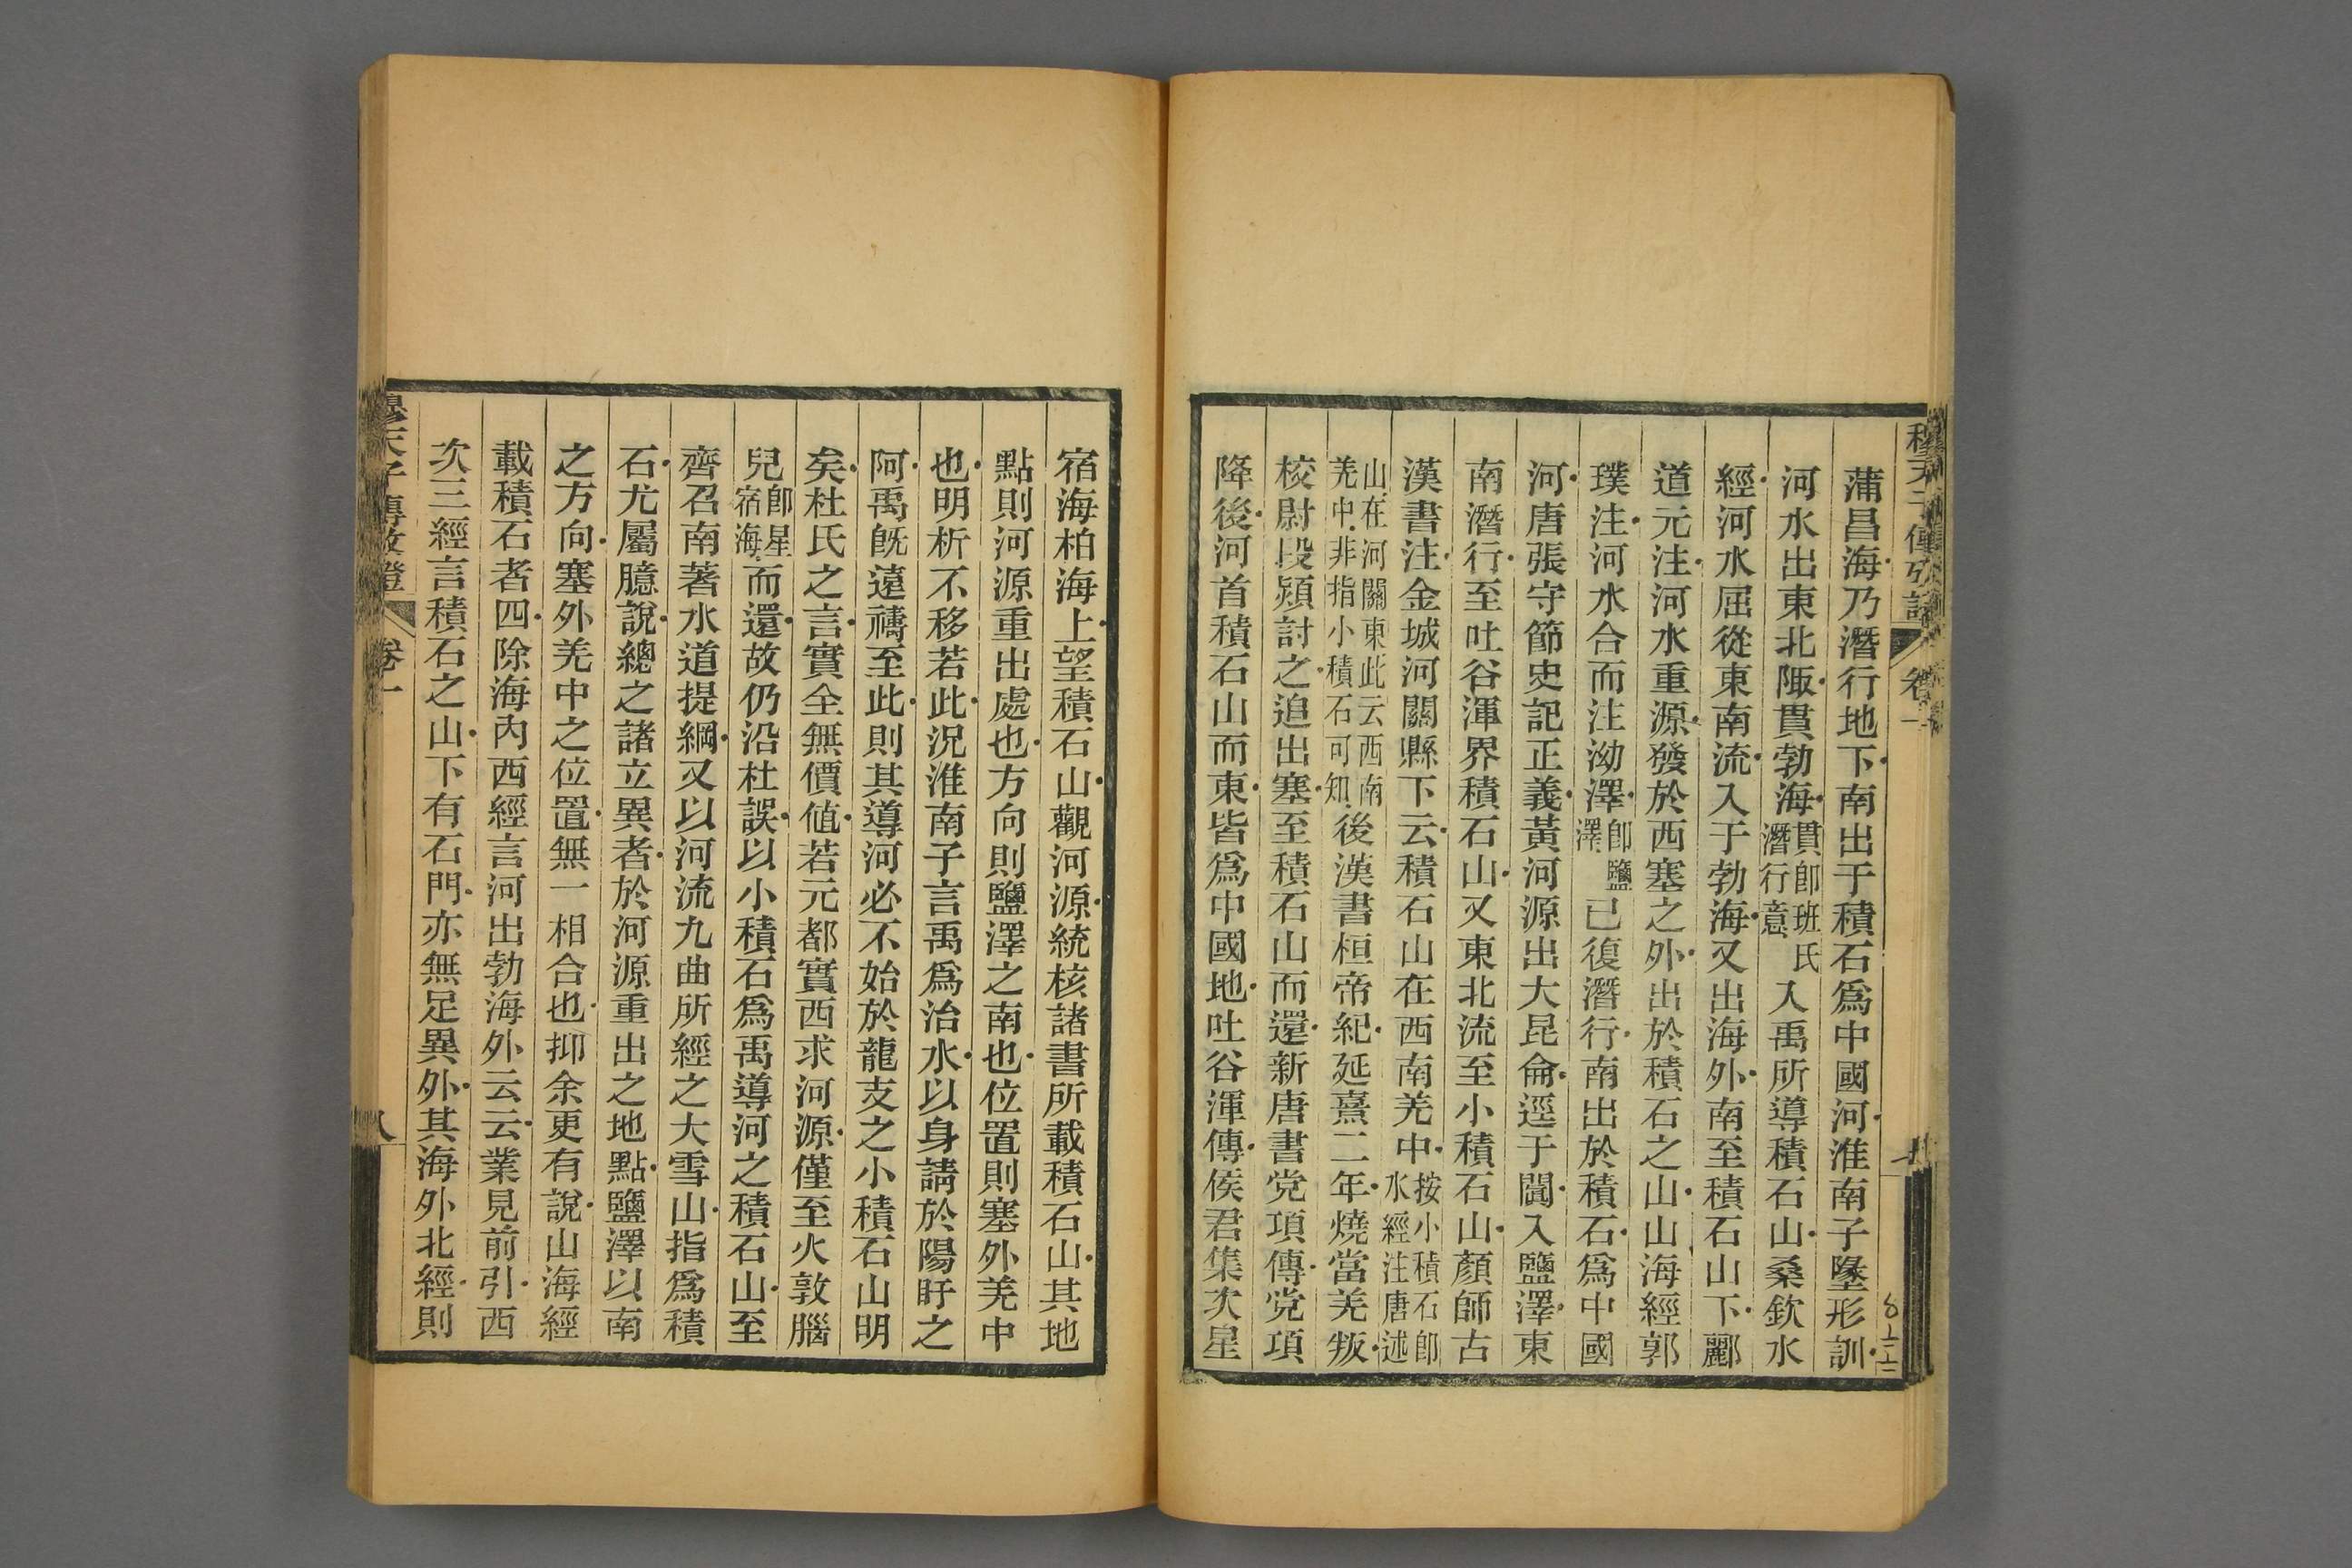 蒲昌海乃潛行地下南出于積石爲中國河淮南子墬形訓
河水出東北陬貫勃海貫卽班氏潛行意入禹所導積石山桑欽水
經河水屈從東南流入于勃海又出海外南至積石山下酈
道元注河水重源發於西塞之外出於積石之山山海經郭
璞注河水合而注泑澤卽鹽澤已復潛行南出於積石爲中國
河唐張守節史記正義黃河源出大昆侖逕于闐入鹽澤東
南潛行至吐谷渾界積石山又東北流至小積石山顏師古
漢書注金城河關縣下云積石山在西南羌中按小積石卽水經注唐述
山在河關東此云西南羌中非指小積石可知後漢書桓帝紀延熹二年燒當羌叛
校尉段熲討之追出塞至積石山而還新唐書党項傳党項
降後河首積石山而東皆爲中國地吐谷渾傳侯君集次星
宿海柏海上望積石山觀河源統核諸書所載積石山其地
點則河源重出處也方向則鹽澤之南也位置則塞外羌中
也明析不移若此況淮南子言禹爲治水以身請於陽盱之
阿禹旣遠禱至此則其導河必不始於龍支之小積石山明
矣杜氏之言實全無價値若元都實西求河源僅至火敦腦
兒卽星宿海而還故仍沿杜誤以小積石爲禹導河之積石山至
齊召南著水道提綱又以河流九曲所經之大雪山指爲積
石尤屬臆說總之諸立異者於河源重出之地點鹽澤以南
之方向塞外羌中之位置無一相合也抑余更有說山海經
載積石者四除海內西經言河出勃海外云云業見前引西
次三經言積石之山下有石門亦無足異外其海外北經則
穆天子傳攷證
卷一
八